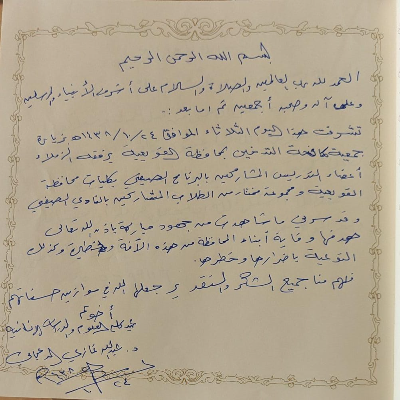 بسم الله الرحمن الرحيم
الحمد لله رب العالمين والصلاة والسلام على أشرف الأنبياء والمرسلين
وعلى آله وصحبه أجمعين ثم أما بعد :-
تشرفت هذا اليوم الثلاثاء الموافق ١٤٣٨/١٠/٢٤هـ بزيارة
جمعية مكافحة التدخين بمحافظة القويعية يرفقه الزملاء
أعضاء التدريس المشاركين بالبرنامج الصيفي بكليات محافظة
القويعية ومجموعة مختارة من الطلاب المشاركين بالنادي الصيفي
وقد سرني ما شاهدت من جهود مباركة بإذن الله تعالى
هدفها وقاية أبناء المحافظة من هذه الآفة وكذلك
التوعية بأضرارها وخطرها.
فلهم منا جميع الشكر والتقدير جعلها الله في موازين حسناتهم
أخوكم
عميد كلية العلوم والدراسات الإنسانية
د. عبدالله غازي